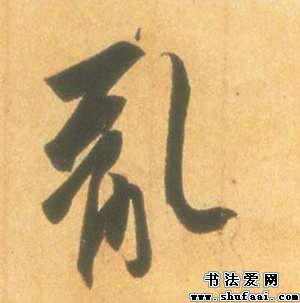 亂
书法爱网
www.shufaai.com